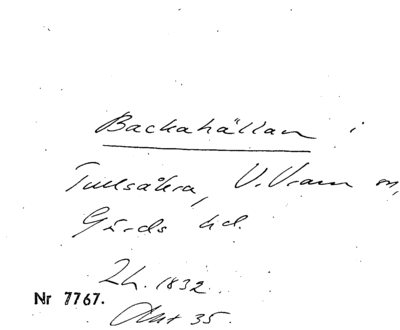 Backahällan i
Tullsåkra, V. Vram sn,
Gärds hd.
Lh. 1832
Nr 7767.
Akt 35.